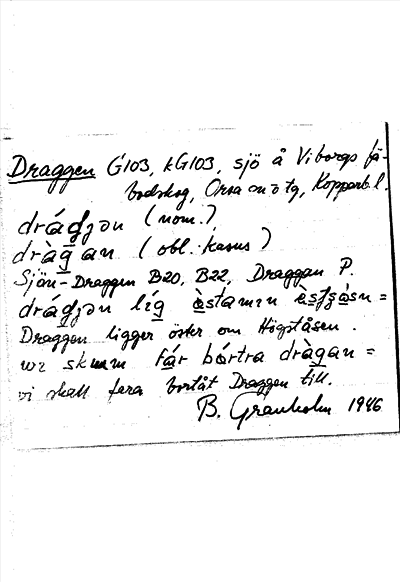 Draggen G103, kG103, sjö å Viborgs fä-
bodskog, Orsa sn o tg, Kopparb. l.
drágjən (nom.)
dràgan (obl. kasus)
Sjön-Draggen B20, B22, Draggan P.
drágjən líg èstamin =
Draggen ligger öster om Högståsen.
wr skum fár bórtra dràgan =
vi skall fara bortåt Draggen till.
B. Granholm 1946